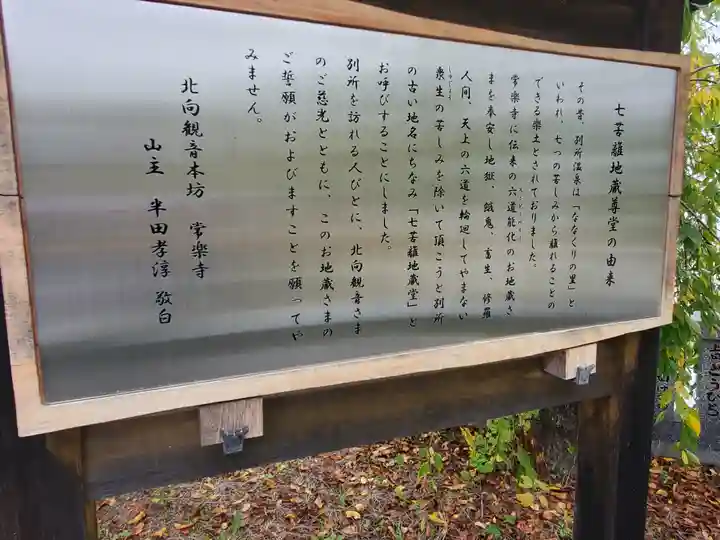 七苦離地蔵尊堂の由来
その昔、別所温泉は「ななくりの里」と
いわれ、七つの苦しみから離れることの
できる楽土とされておりました。
常楽寺に伝来の六道能化のお地蔵さ
まを奉安し地獄、餓鬼、畜生、修羅
人間、天上の六道を輪廻してやまない
衆生の苦しみを除いて頂こうと別所
の古い地名にちなみ「七苦離地蔵堂」と
お呼びすることにしました。
別所を訪れる人びとに、北向観音さま
のご慈光とともに、このお地蔵さまの
ご誓願がおよびますことを願ってや
みません。
北向観音本坊 常楽寺
山主 半田孝淳 敬白